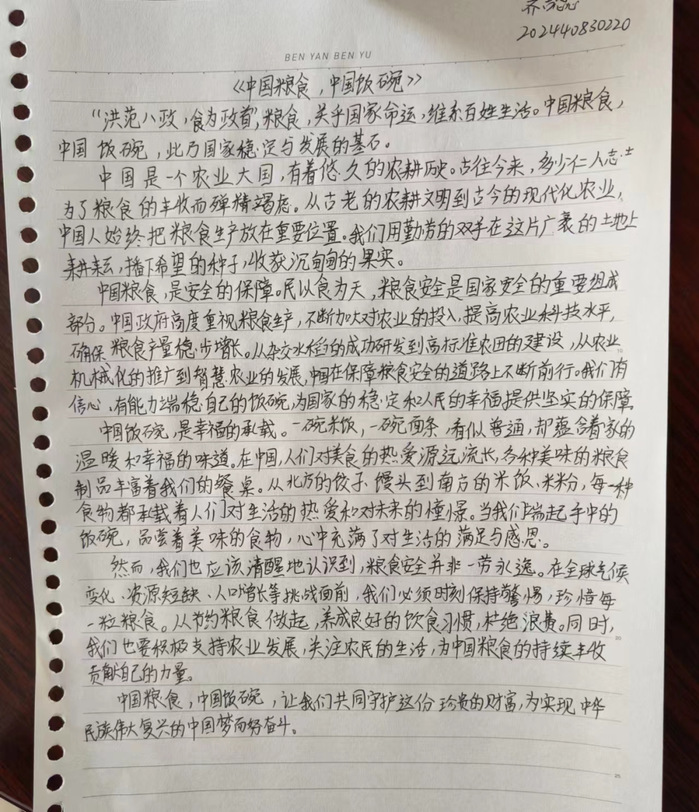 齐
202440830220
BEN YAN BEN YU
《中国粮食，中国饭碗》
“洪范八政，食为政首”，粮食，关乎国家命运，维系百姓生活。中国粮食，
中国饭碗，此乃国家稳定与发展的基石。
中国是一个农业大国，有着悠久的农耕历史。古往今来，多少仁人志士
为了粮食的丰收而殚精竭虑。从古老的农耕文明到古今的现代化农业，
中国人始终把粮食生产放在重要位置。我们用勤劳的双手在这片广袤的土地上
耕耘，播下希望的种子，收获沉甸甸的果实。
中国粮食，是安全的保障。民以食为天，粮食安全是国家安全的重要组成
部分。中国政府高度重视粮食生产，不断加大对农业的投入，提高农业科技水平，
确保粮食产量稳步增长。从杂交水稻的成功研发到高标准农田的建设，从农业
机械化的推广到智慧农业的发展，中国在保障粮食安全的道路上不断前行。我们有
信心、有能力端稳自己的饭碗，为国家的稳定和人民的幸福提供坚实的保障。
中国饭碗，是幸福的承载。一碗米饭，一碗面条，看似普通，却蕴含着家的
温暖和幸福的味道。在中国，人们对美食的热爱源远流长，各种美味的粮食
制品丰富着我们的餐桌。从北方的饺子、馒头到南方的米饭、米粉，每一种
食物都承载着人们对生活的热爱和对未来的憧憬。当我们端起手中的
饭碗，品尝着美味的食物，心中充满了对生活的满足与感恩。
然而，我们也应该清醒地认识到，粮食安全并非一劳永逸。在全球气候
变化、资源短缺、人口增长等挑战面前，我们必须时刻保持警惕，珍惜每
一粒粮食。从节约粮食做起，养成良好的饮食习惯，杜绝浪费。同时，
我们也要积极支持农业发展，关注农民的生活，为中国粮食的持续丰收
贡献自己的力量。
中国粮食，中国饭碗，让我们共同守护这份珍贵的财富，为实现中华
民族伟大复兴的中国梦而努奋斗。